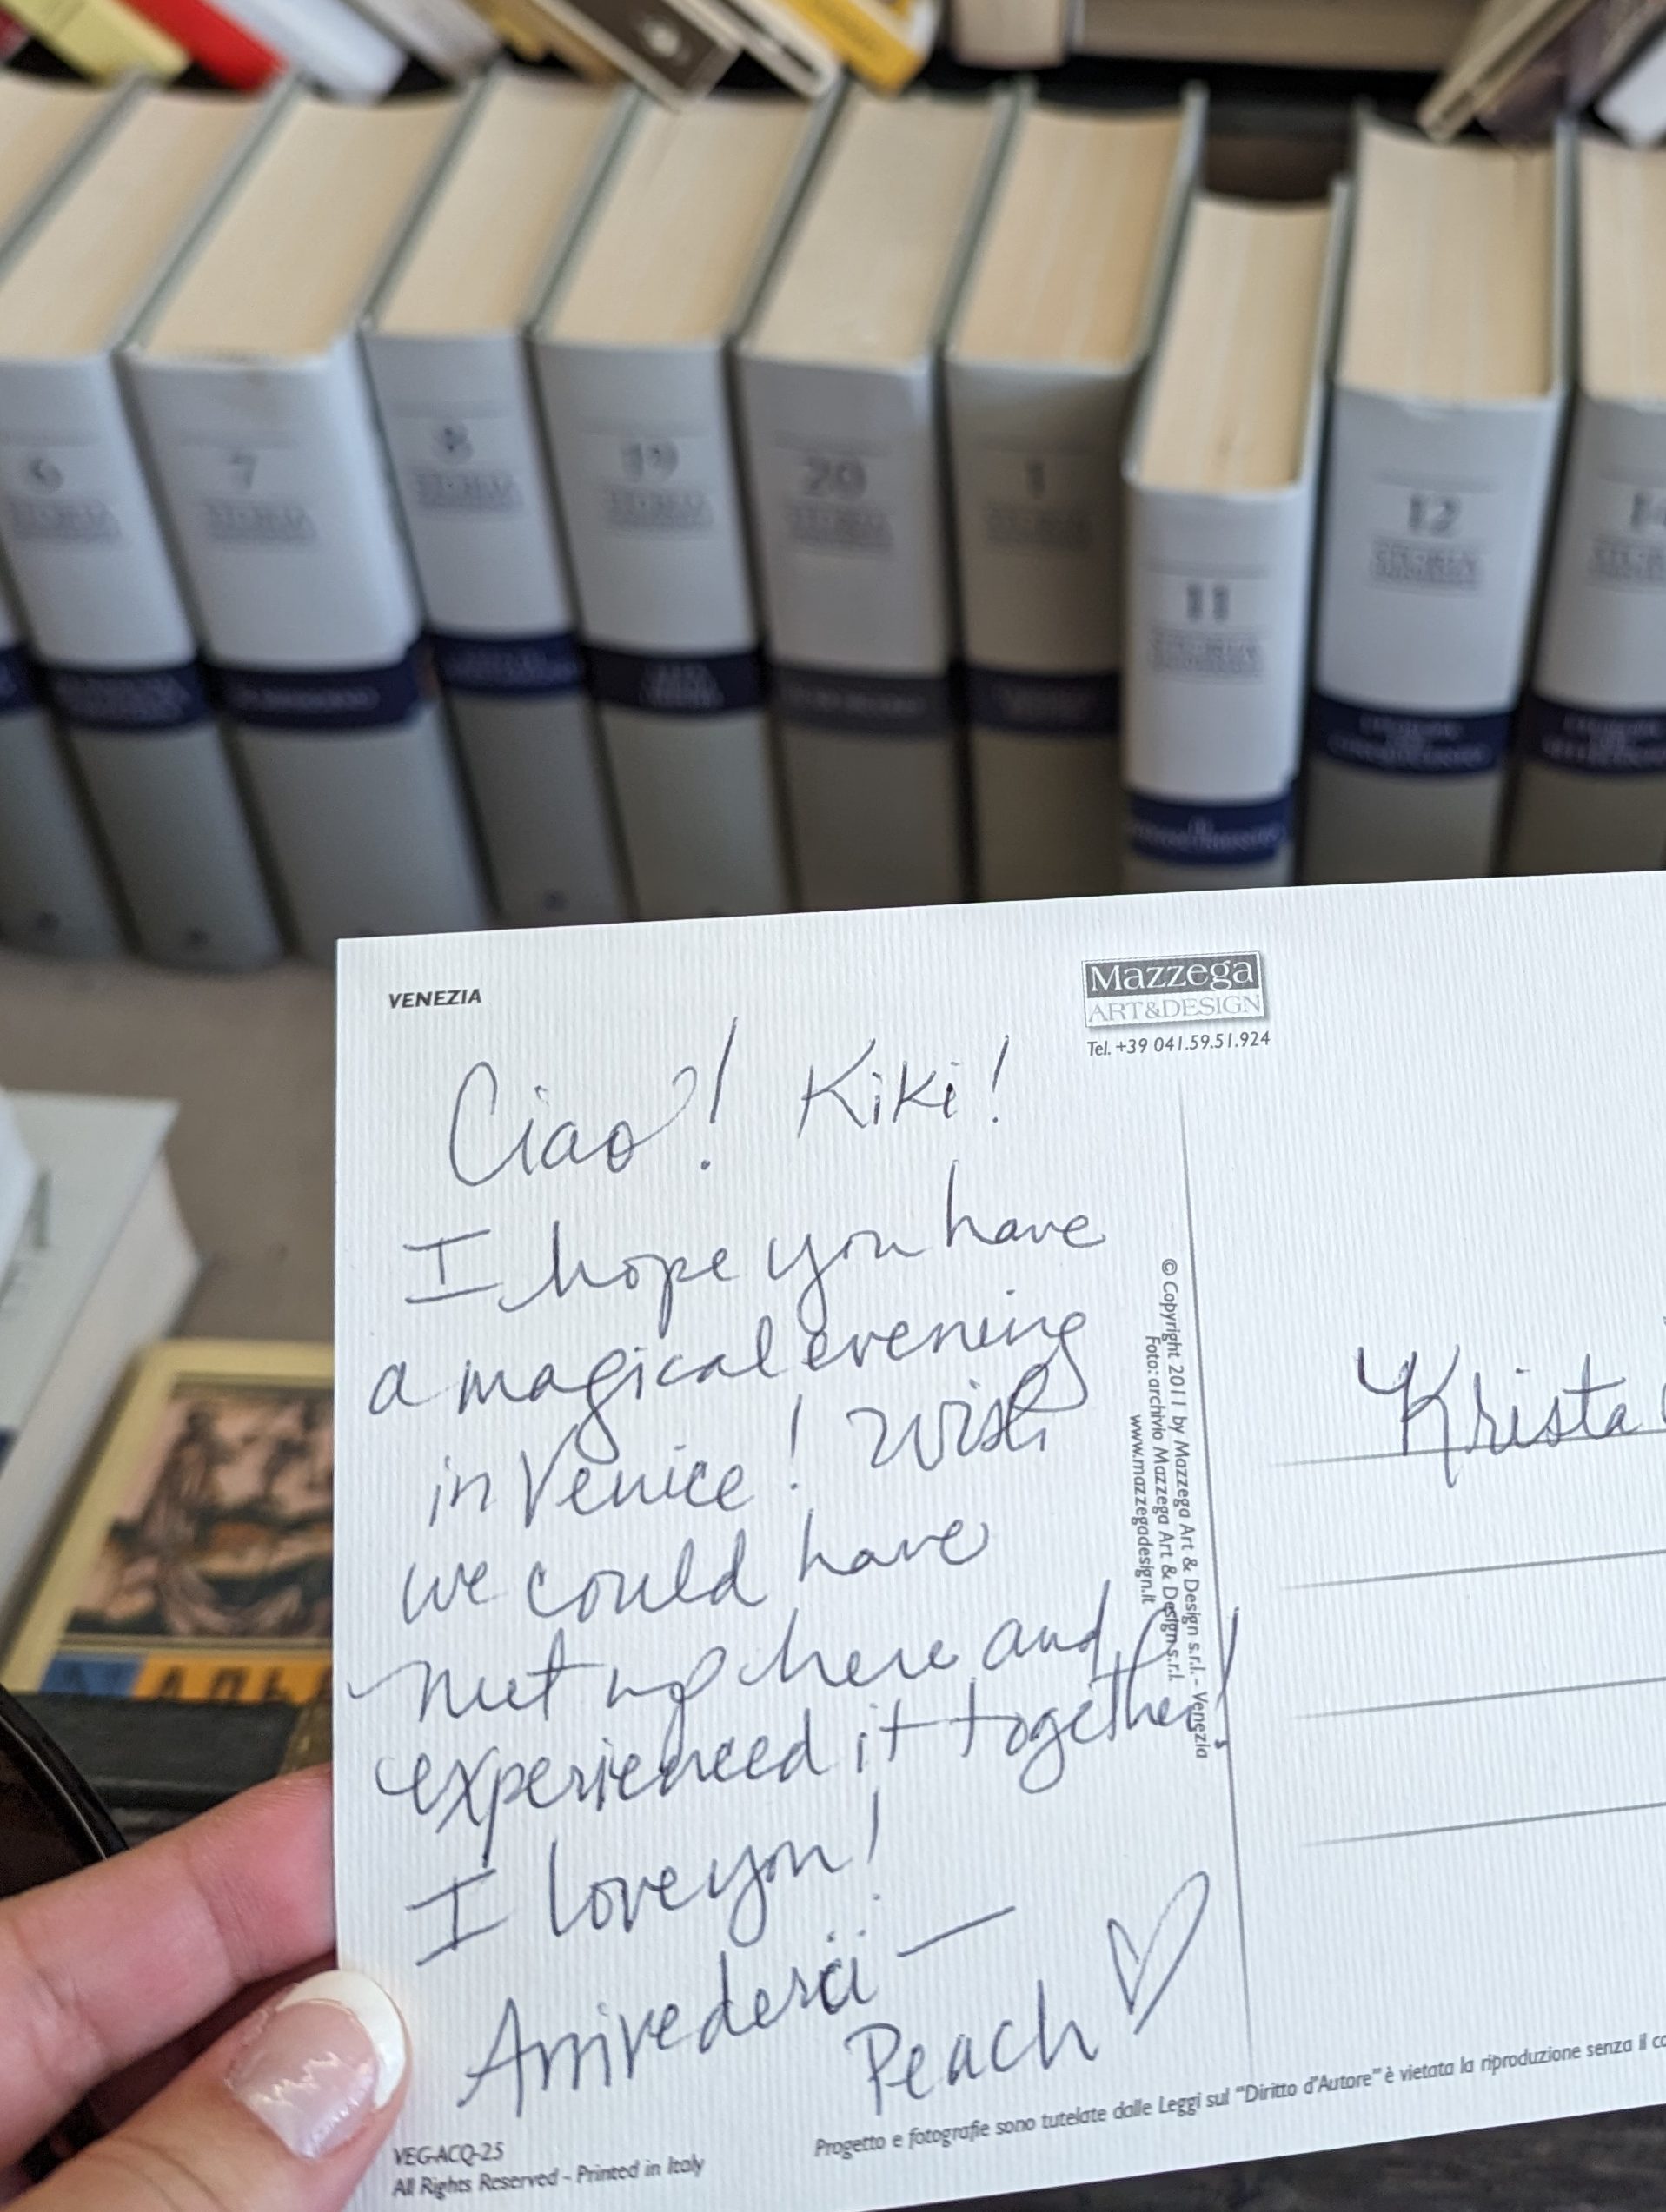 6
7
8
19
20
1
11
12
14
STORIA
STORIA
STORIA
STORIA
STORIA
STORIA
STORIA
VENEZIA
Mazzega
ART&DESIGN
Tel. +39 041.59.51.924
Ciao! Kiki!
I hope you have
a magical evening
in Venice! Wish
we could have
met up here and
experienced it together!
I love you!
Arrivederci —
Peach
© Copyright 2011 by Mazzega Art & Design s.r.l. - Venezia
Foto: archivio Mazzega Art & Design s.r.l.
www.mazzegadesign.it
Krista
VEG-ACQ-25
All Rights Reserved - Printed in Italy
Progetto e fotografie sono tutelate dalle Leggi sul "Diritto d'Autore" è vietata la riproduzione senza il